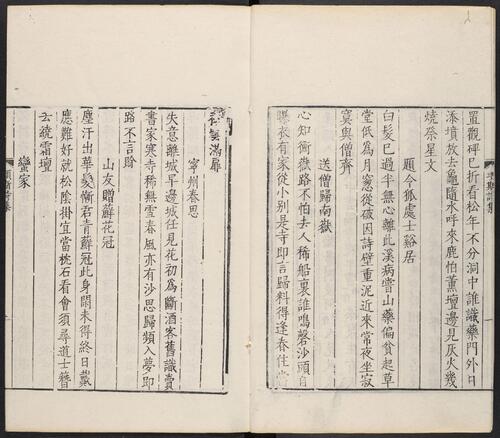 置觀碑已折看松年不分洞中誰識藥門外日
添墳放去龜隨水呼來鹿怕薰壇邊見灰火幾
燒祭星文
題令狐處士谿居
白髪已過半無心離此溪病嘗山藥徧貧起草
堂低為月窻從破因詩壁重泥近來常夜坐寂
寞與僧齊
送僧歸南嶽
心知衡嶽路不怕去人稀船裏誰鳴磬沙頭自
曝衣有家從小别是寺即言歸料得逢春住當
禪雲滿扉
寧州春思
失意離城早邊城任見花初為斷酒客舊識賣
書家寒寺稀無雪春風亦有沙思歸頻入夢即
路不言賒
山友贈蘚花冠
塵汗出華髮慚君青蘚冠此身閑未得終日戴
應難好就松陰掛宜當枕石看會須尋道士簪
去繞霜壇
蠻家
項斯詩集